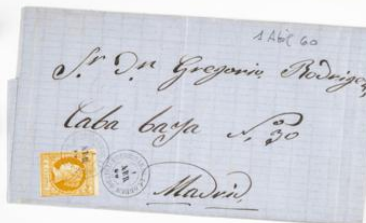 1 Abl 60
Sr Dn Gregorio Rodrigo
Caba baja Nº 30
Madrid